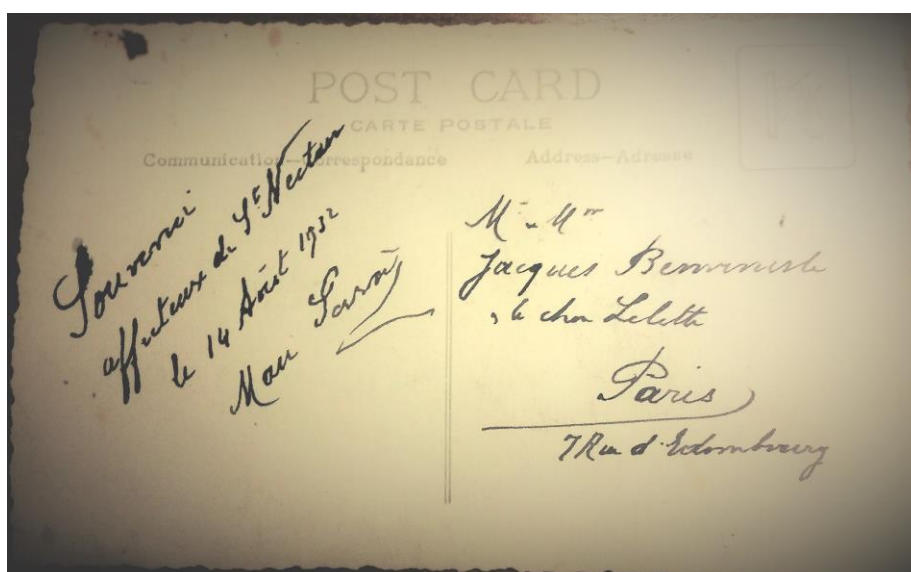 POST CARD
CARTE POSTALE
Communication—Correspondance
Address—Adresse
Souvenir
affectueux de St Nectaire
le 14 Août 1932
Jacques Benveniste
Paris
7 Rue d'Edombourg